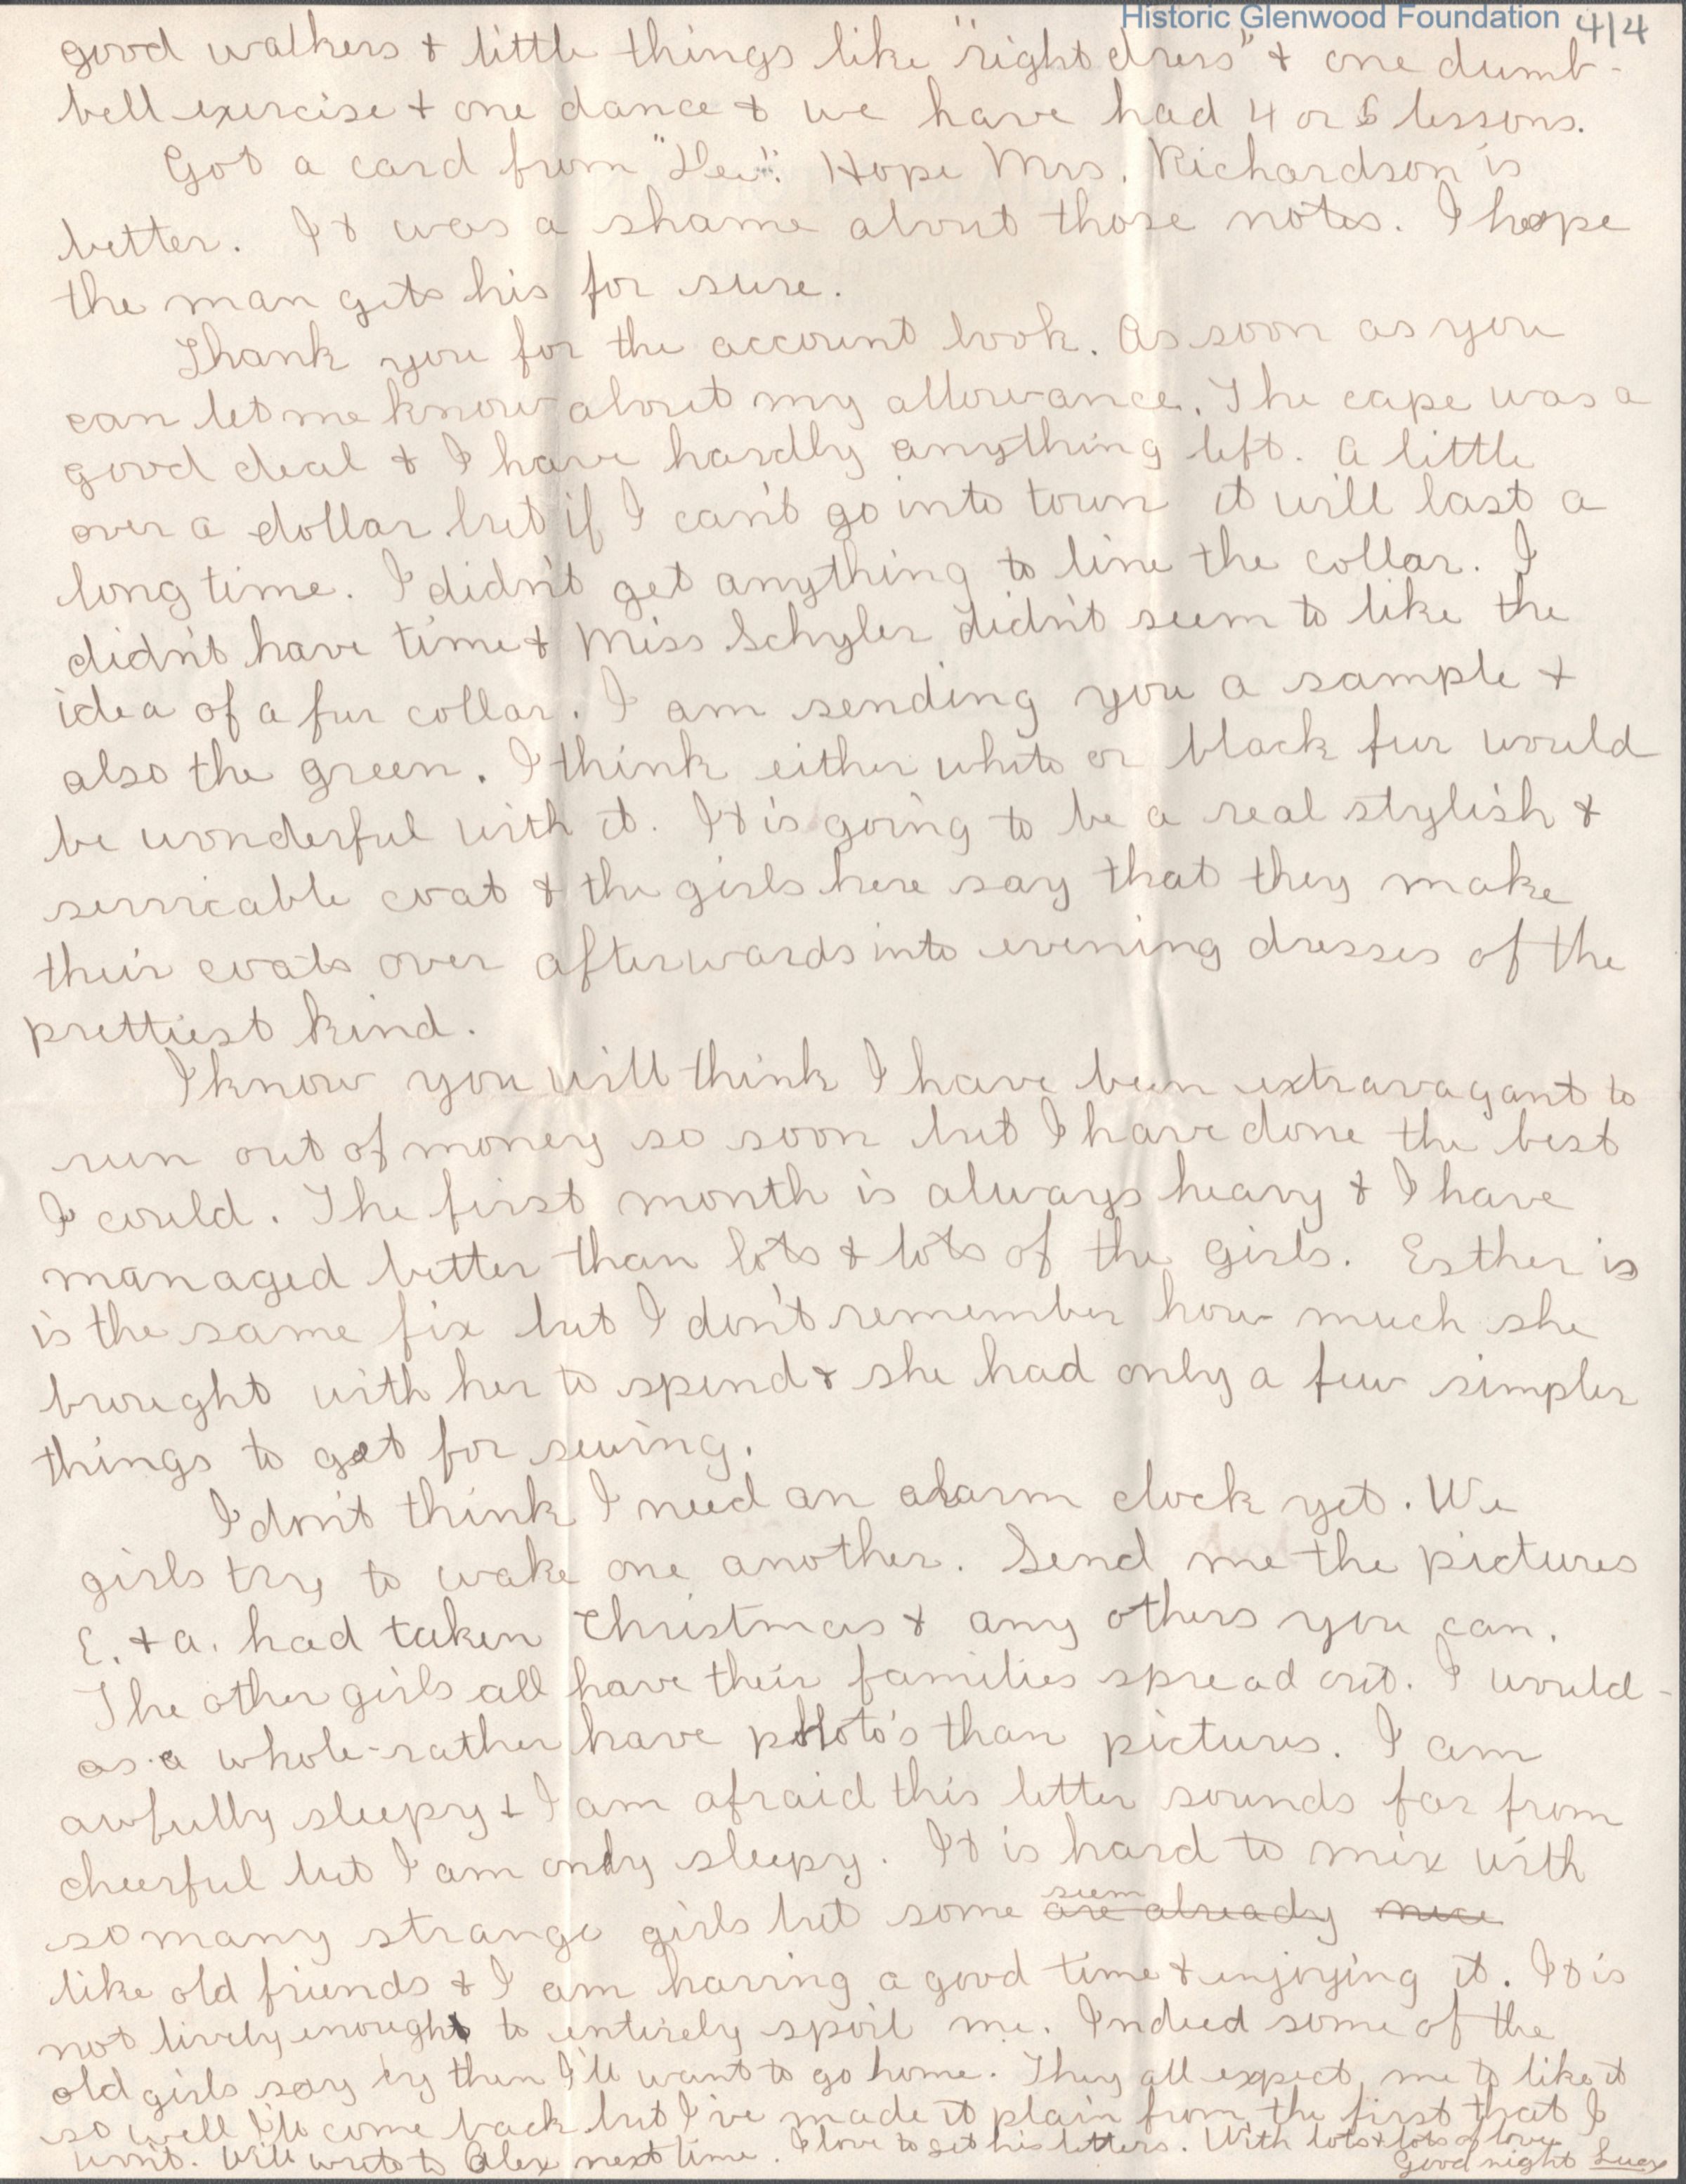 Historic Glenwood Foundation 4/4
good walkers & little things like "right dress" & one dumb-
bell exercise & one dance & we have had 4 or 5 lessons.
Got a card from Hope Mrs. Richardson is
better. It was a shame about those notes. I hope
the man gets his for sure.
Thank you for the account book. As soon as you
can let me know about my allowance. The cape was a
good deal & I have hardly anything left. A little
over a dollar but if I can't go into town it will last a
long time. I didn't get anything to line the collar. I
didn't have time & Miss Schyler didn't seem to like the
idea of a fur collar. I am sending you a sample &
also the green. I think either white or black fur would
be wonderful with it. It is going to be a real stylish &
servicable coat & the girls here say that they make
their coats over afterwards into evening dresses of the
prettiest kind.
I know you will think I have been extravagant to
run out of money so soon but I have done the best
I could. The first month is always heavy & I have
managed better than lots & lots of the girls. Esther is
is the same fix but I don't remember how much she
brought with her to spend & she had only a few simpler
things to get for sewing.
I don't think I need an alarm clock yet. We
girls try to wake one another. Send me the pictures
E. & A. had taken Christmas & any others you can.
The other girls all have their families spread out. I would-
as a whole-rather have photo's than pictures. I am
awfully sleepy & I am afraid this letter sounds far from
cheerful but I am only sleepy. It is hard to mix with
so many strange girls but some seem are already nice
like old friends & I am having a good time & enjoying it. It is
not lively enough to entirely spoil me. Indeed some of the
old girls say by then I'll want to go home. They all expect me to like it
so well I'll come back but I've made it plain from the first that I
won't. Will write to Alex next time. I love to get his letters. With lots & lots of love
Good night Lucy